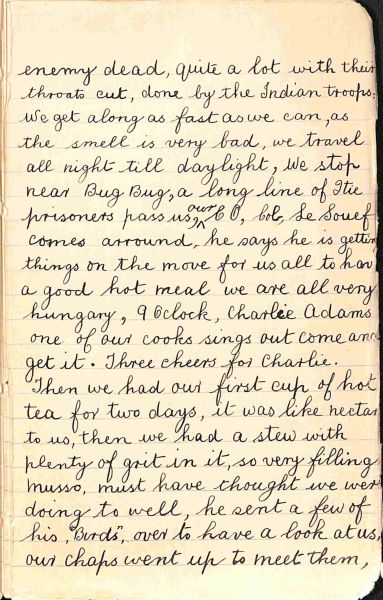 enemy dead, quite a lot with their
throats cut, done by the Indian troops;
We get along as fast as we can, as
the smell is very bad, we travel
all night till daylight, We stop
near Bug Bug, a long line of Itie
prisoners pass us, our C O, Col, Le Souef
comes arround, he says he is getting
things on the move for us all to have
a good hot meal we are all very
hungary, 9 Oclock, Charlie Adams
one of our cooks sings out come and
get it. Three cheers for Charlie.
Then we had our first cup of hot
tea for two days, it was like nectar
to us, then we had a stew with
plenty of grit in it, so very filling
Musso, must have thought we were
doing to well, he sent a few of
his, "Birds", over to have a look at us,
our chaps went up to meet them,